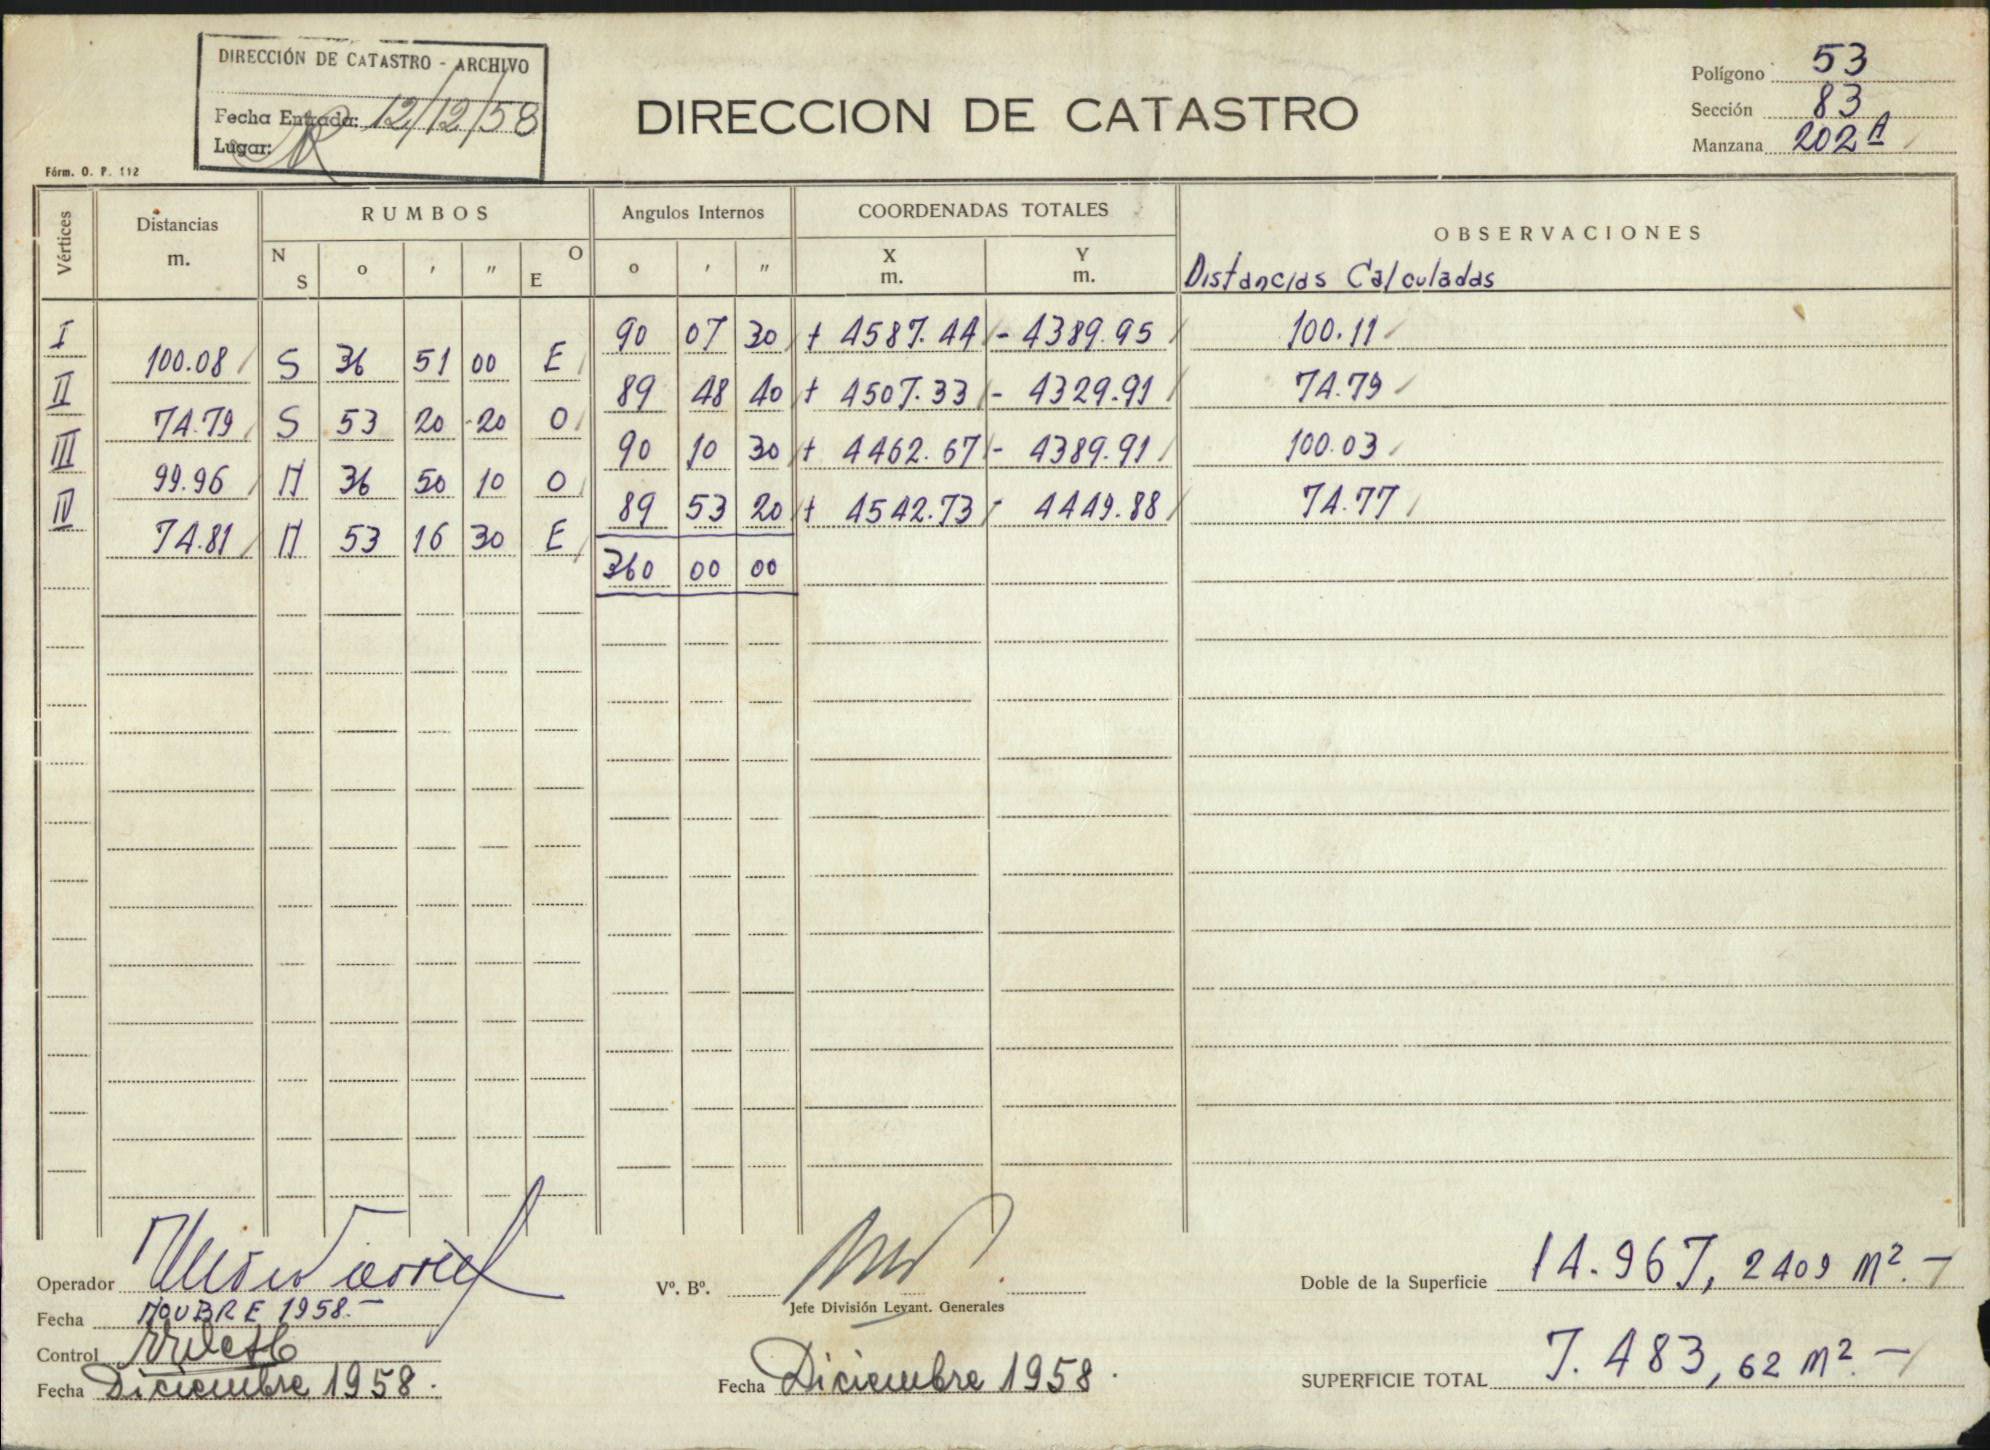 DIRECCIÓN DE CATASTRO - ARCHIVO
Fecha Entrada: 12/12/58
Lugar:
DIRECCION DE CATASTRO
Polígono 53
Sección 83
Manzana 202 A
Fórm. O. P. 112
Vértices Distancias m. RUMBOS Angulos Internos COORDENADAS TOTALES OBSERVACIONES
N S o ′ ″ O E o ′ ″ X m. Y m. Distancias Calculadas
I 90 07 30 + 4587.44 - 4389.95 100.11
100.08 S 36 51 00 E
II 89 48 40 + 4507.33 - 4329.91 74.79
74.79 S 53 20 20 O
III 90 10 30 + 4462.67 - 4389.91 100.03
99.96 N 36 50 10 O
IV 89 53 20 + 4542.73 - 4449.88 74.77
74.81 N 53 16 30 E
360 00 00
Operador
Fecha NOVBRE 1958.-
Control
Fecha Diciembre 1958.
Vº. Bº.
Jefe División Levant. Generales
Fecha Diciembre 1958.
Doble de la Superficie 14.967, 2409 M².-
SUPERFICIE TOTAL 7.483, 62 M².-